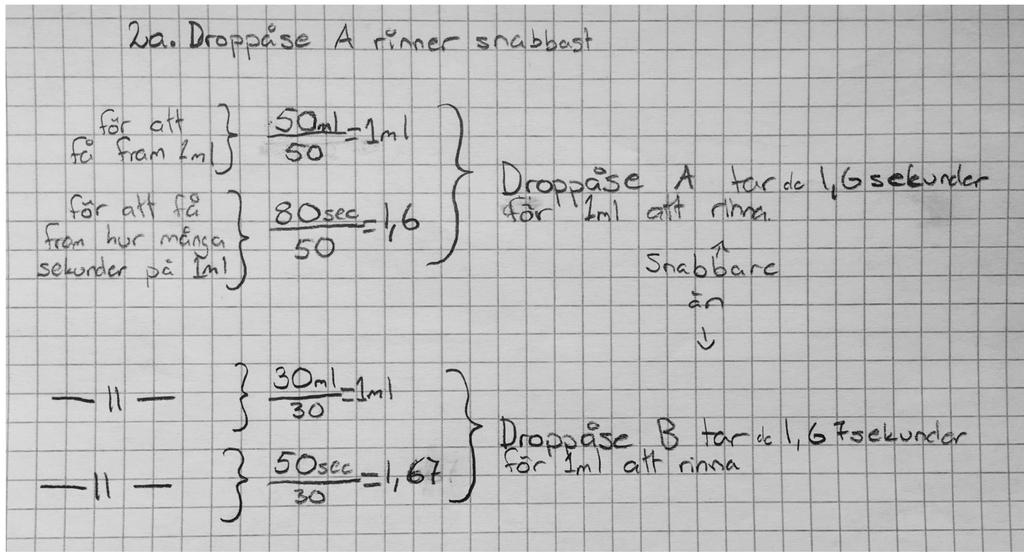 2a. Droppåse A rinner snabbast
för att
få fram 1ml
50ml/50 = 1ml
för att få
fram hur många
sekunder på 1ml
80sec/50 = 1,6
Droppåse A tar dc 1,6 sekunder
för 1ml att rinna.
↑
Snabbare
än
↓
— || —
30ml/30 = 1ml
— || —
50sec/30 = 1,67
Droppåse B tar dc 1,67 sekunder
för 1ml att rinna